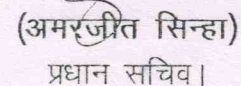 (अमरजीत सिन्हा)
प्रधान सचिव।